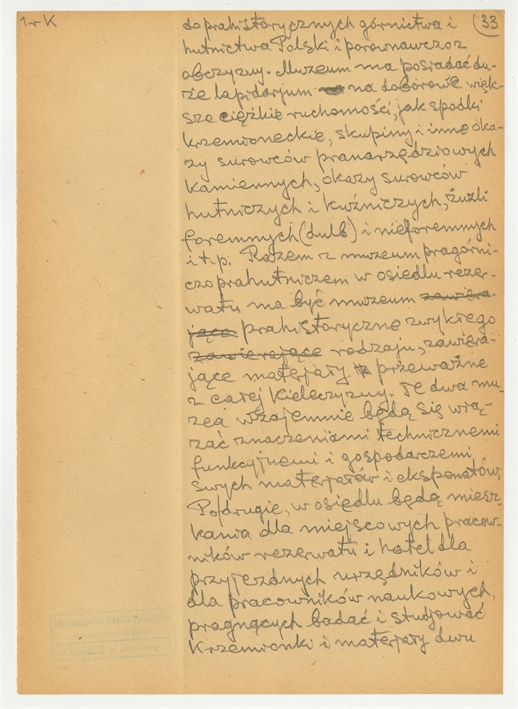 1rK
33
do prahistorycznych górnictwa i
hutnictwa Polski i porównawczo z
obczyzny. Muzeum ma posiadać du-
że lapidarjum na doborowe więk-
sze ciężkie ruchomości, jak spodki
krzemioneckie, skupiny i inne oka-
zy surowców pranarzędziowych
kamiennych, okazy surowców
hutniczych i kuźniczych, żużli
foremnych (dulb) i nieforemnych
i t.p. Razem z muzeum pragórni-
czo prahutniczem w osiedlu rezer-
watu ma być muzeum zawiera-
jące prahistoryczne zwykłego
zawierające rodzaju, zawiera-
jące materjały przeważne
z całej Kielecczyzny. Te dwa mu-
zea wzajemnie będą się wią-
zać znaczeniami technicznemi
funkcyjnemi i gospodarczemi
swych materjałów i eksponatów.
Po/drugie, w osiedlu będą miesz-
kania dla miejscowych pracow-
ników rezerwatu i hotel dla
przyjezdnych urzędników i
dla pracowników naukowych,
pragnących badać i studjować
Krzemionki i materjały dwu